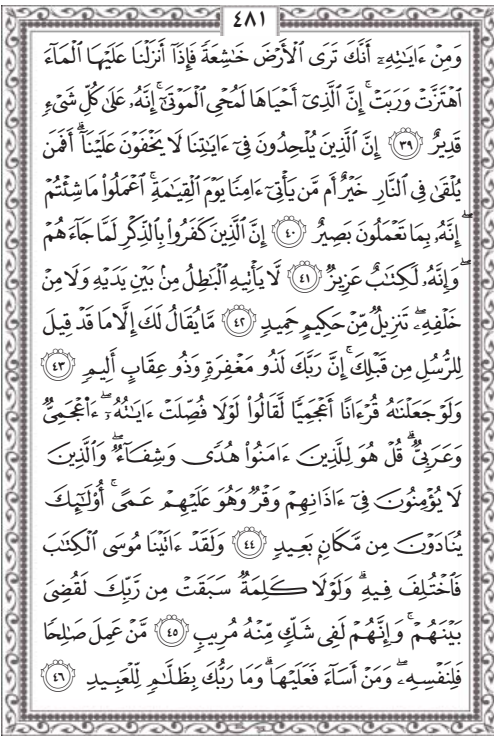 ٤٨١
وَمِنْ ءَايَٰتِهِۦٓ أَنَّكَ تَرَى ٱلْأَرْضَ خَٰشِعَةً فَإِذَآ أَنزَلْنَا عَلَيْهَا ٱلْمَآءَ
ٱهْتَزَّتْ وَرَبَتْ ۚ إِنَّ ٱلَّذِىٓ أَحْيَاهَا لَمُحْىِ ٱلْمَوْتَىٰٓ ۚ إِنَّهُۥ عَلَىٰ كُلِّ شَىْءٍ
قَدِيرٌ ٣٩ إِنَّ ٱلَّذِينَ يُلْحِدُونَ فِىٓ ءَايَٰتِنَا لَا يَخْفَوْنَ عَلَيْنَآ ۗ أَفَمَن
يُلْقَىٰ فِى ٱلنَّارِ خَيْرٌ أَم مَّن يَأْتِىٓ ءَامِنًا يَوْمَ ٱلْقِيَٰمَةِ ۚ ٱعْمَلُوا۟ مَا شِئْتُمْ
ۖ إِنَّهُۥ بِمَا تَعْمَلُونَ بَصِيرٌ ٤٠ إِنَّ ٱلَّذِينَ كَفَرُوا۟ بِٱلذِّكْرِ لَمَّا جَآءَهُمْ
ۖ وَإِنَّهُۥ لَكِتَٰبٌ عَزِيزٌ ٤١ لَّا يَأْتِيهِ ٱلْبَٰطِلُ مِنۢ بَيْنِ يَدَيْهِ وَلَا مِنْ
خَلْفِهِۦ ۖ تَنزِيلٌ مِّنْ حَكِيمٍ حَمِيدٍ ٤٢ مَّا يُقَالُ لَكَ إِلَّا مَا قَدْ قِيلَ
لِلرُّسُلِ مِن قَبْلِكَ ۚ إِنَّ رَبَّكَ لَذُو مَغْفِرَةٍ وَذُو عِقَابٍ أَلِيمٍ ٤٣
وَلَوْ جَعَلْنَٰهُ قُرْءَانًا أَعْجَمِيًّا لَّقَالُوا۟ لَوْلَا فُصِّلَتْ ءَايَٰتُهُۥٓ ۖ ءَا۬عْجَمِىٌّ
وَعَرَبِىٌّ ۗ قُلْ هُوَ لِلَّذِينَ ءَامَنُوا۟ هُدًى وَشِفَآءٌ ۖ وَٱلَّذِينَ
لَا يُؤْمِنُونَ فِىٓ ءَاذَانِهِمْ وَقْرٌ وَهُوَ عَلَيْهِمْ عَمًى ۚ أُو۟لَٰٓئِكَ
يُنَادَوْنَ مِن مَّكَانٍۭ بَعِيدٍ ٤٤ وَلَقَدْ ءَاتَيْنَا مُوسَى ٱلْكِتَٰبَ
فَٱخْتُلِفَ فِيهِ ۗ وَلَوْلَا كَلِمَةٌ سَبَقَتْ مِن رَّبِّكَ لَقُضِىَ
بَيْنَهُمْ ۚ وَإِنَّهُمْ لَفِى شَكٍّ مِّنْهُ مُرِيبٍ ٤٥ مَّنْ عَمِلَ صَٰلِحًا
فَلِنَفْسِهِۦ ۖ وَمَنْ أَسَآءَ فَعَلَيْهَا ۗ وَمَا رَبُّكَ بِظَلَّٰمٍ لِّلْعَبِيدِ ٤٦